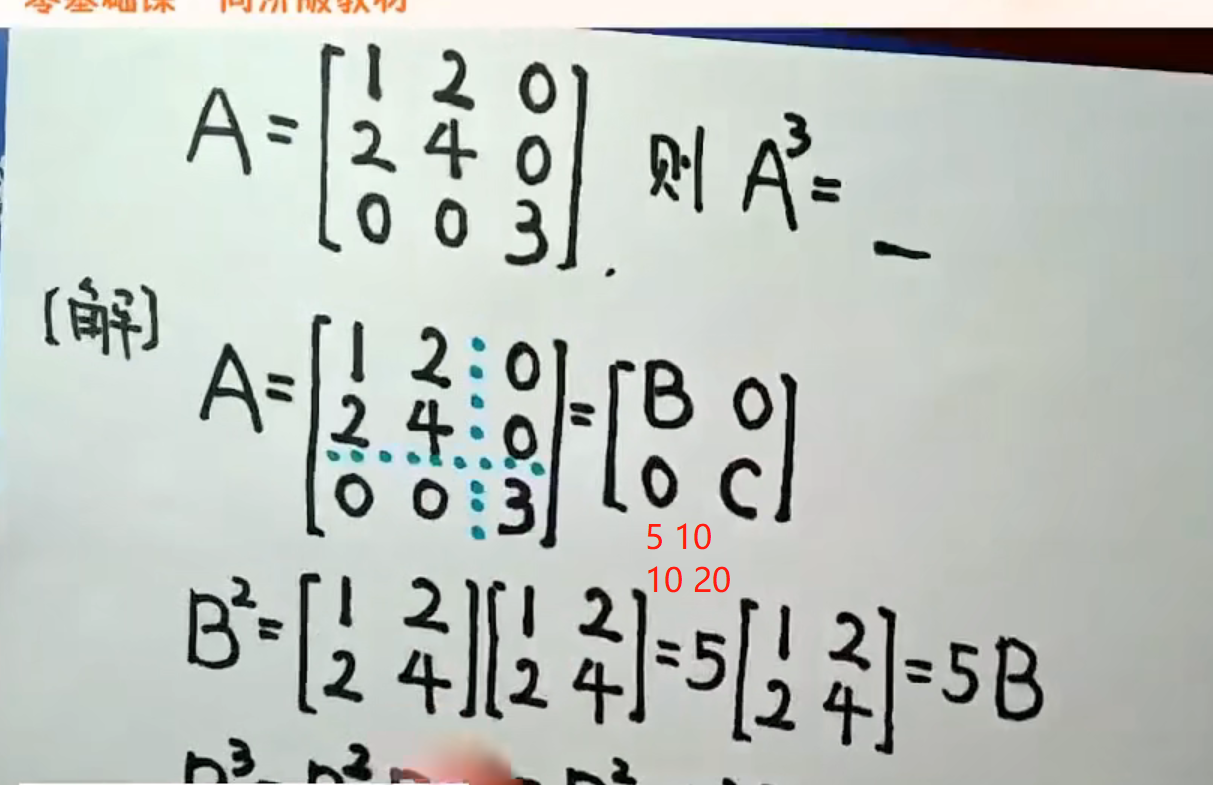 零基础课 同济版教材
A = [1 2 0
2 4 0
0 0 3]. 则 A³ = _
[解]
A = [1 2 0
2 4 0
0 0 3] = [B 0
0 C]
5 10
10 20
B² = [1 2
2 4][1 2
2 4] = 5[1 2
2 4] = 5B